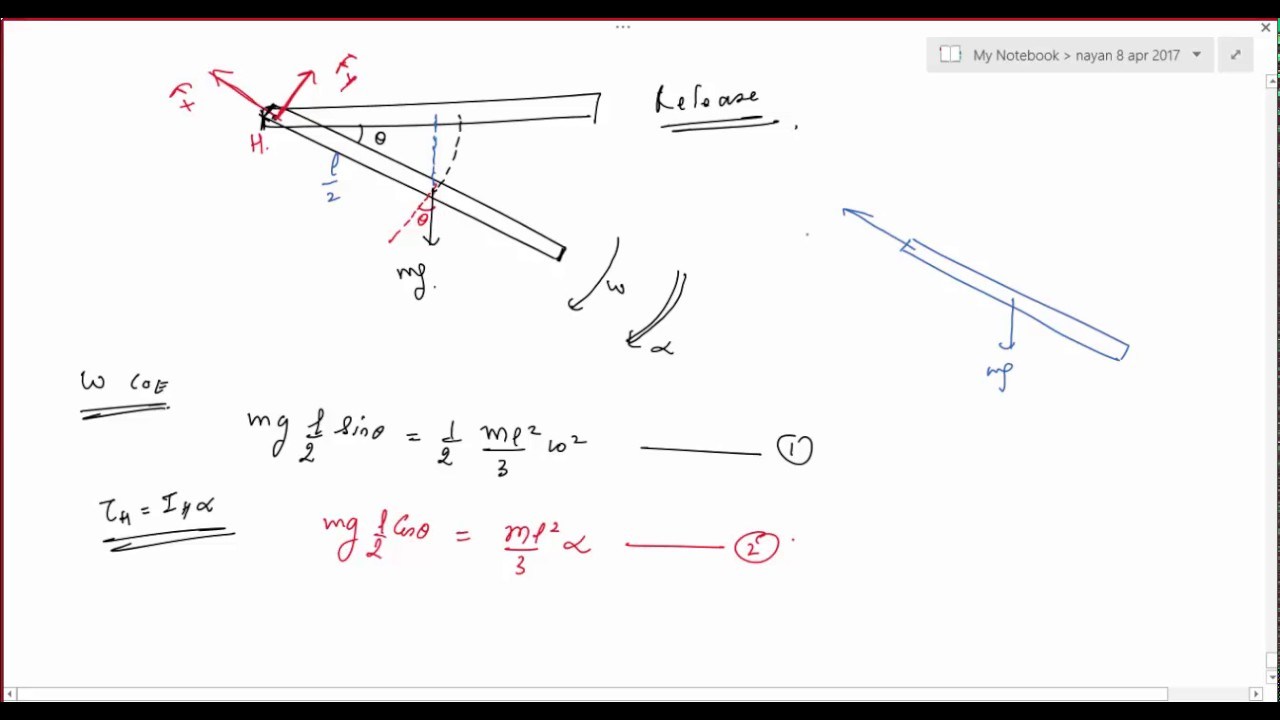 My Notebook > nayan 8 apr 2017
Fx
Fy
Release
H.
θ
l/2
θ
mg.
ω
α
mg
ω COE
mg l/2 sinθ = 1/2 ml²/3 ω² ——— ①
τH = IHα
mg l/2 Cosθ = ml²/3 α ——— ②